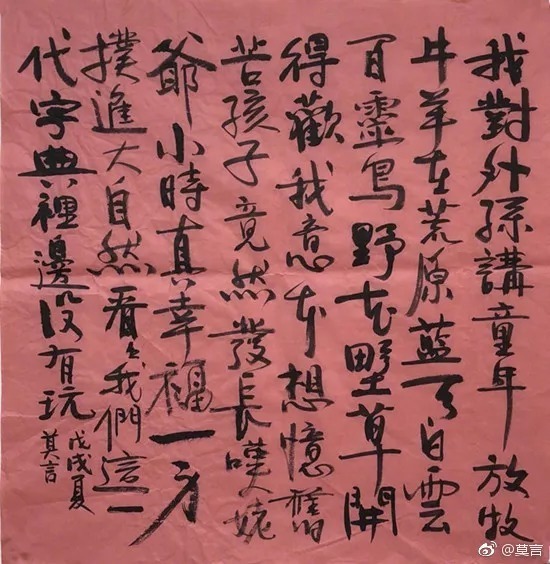 我對外孫講童年放牧
牛羊在荒原藍天白雲
百靈鳥野花野草開
得歡我意本想憶舊
苦孩子竟然發長嘆姥
爺小時真幸福一身
撲進大自然看々我們這一
代字典裡邊沒有玩
戊戌夏
莫言
@莫言